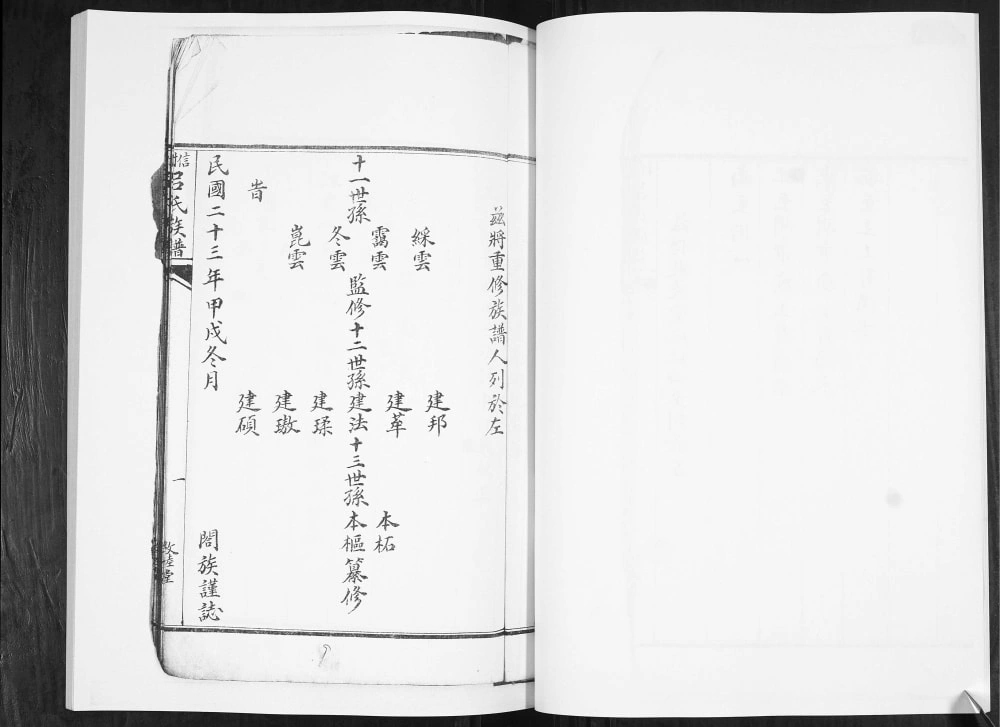 茲將重修族譜人列於左
綵雲
靄雲
十一世孫冬雲監修十二世孫建法十三世孫本樞纂修
崑雲
建邦
建華
建瑈
建璈
建碩
本柘
旹
民國二十三年甲戌冬月
閤族謹誌
信
呂氏族譜
一
敦睦堂